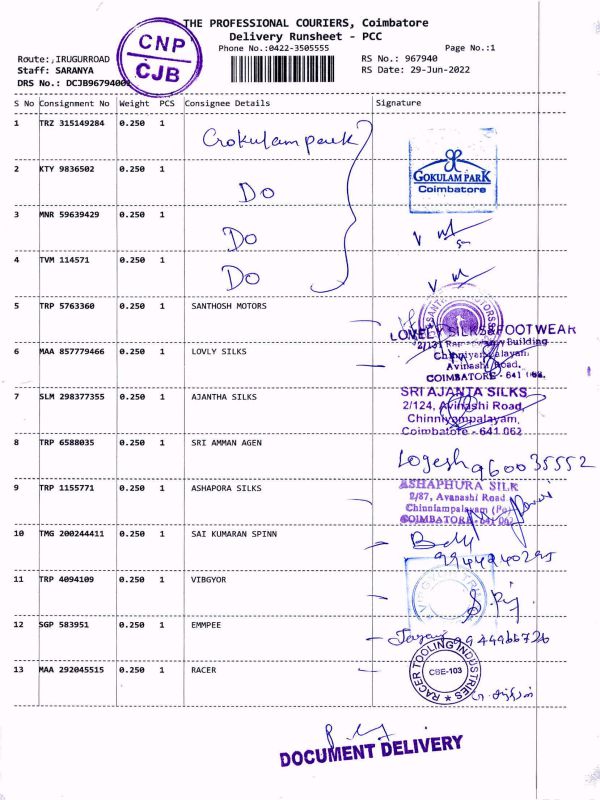 THE PROFESSIONAL COURIERS, Coimbatore
Delivery Runsheet - PCC
Phone No.:0422-3505555
Page No.:1
CNP
CJB
Route:,IRUGURROAD
RS No.: 967940
Staff: SARANYA
RS Date: 29-Jun-2022
DRS No.: DCJB96794001
S No Consignment No Weight PCS Consignee Details Signature
1 TRZ 315149284 0.250 1 Crokulam park
GOKULAM PARK
Coimbatore
2 KTY 9836502 0.250 1 Do
3 MNR 59639429 0.250 1 Do
4 TVM 114571 0.250 1 Do
5 TRP 5763360 0.250 1 SANTHOSH MOTORS
LOVELY SILKS&FOOTWEAR
Building
Chinniyampalayam,
Avinashi Road,
COIMBATORE - 641 062.
6 MAA 857779466 0.250 1 LOVLY SILKS
7 SLM 298377355 0.250 1 AJANTHA SILKS
SRI AJANTA SILKS
2/124, Avinashi Road,
Chinniyampalayam,
Coimbatore - 641 062
8 TRP 6588035 0.250 1 SRI AMMAN AGEN
Logesh 9600 35552
9 TRP 1155771 0.250 1 ASHAPORA SILKS
ASHAPHURA SILK
2/87, Avanashi Road
Chinnlampalayam (Po)
COIMBATORE-641 062
10 TMG 200244411 0.250 1 SAI KUMARAN SPINN
11 TRP 4094109 0.250 1 VIBGYOR
12 SGP 583951 0.250 1 EMMPEE
13 MAA 292045515 0.250 1 RACER
RACER TOOLING INDUSTRIES
CBE-103
DOCUMENT DELIVERY